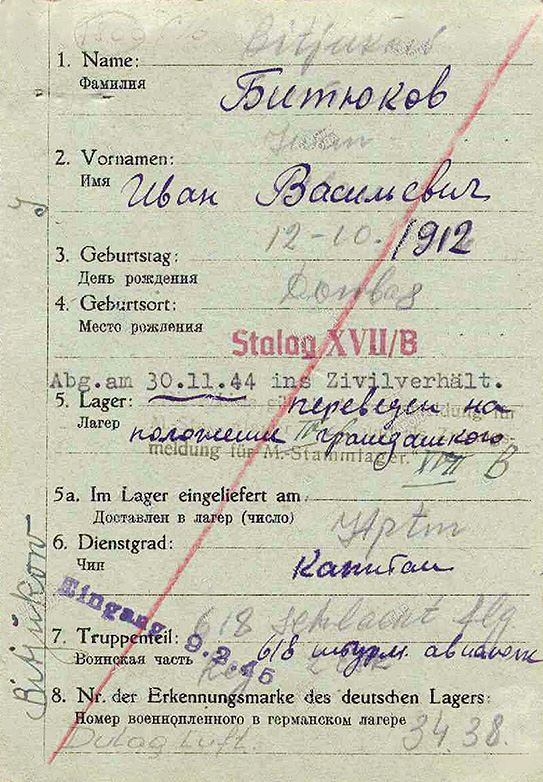 Bitjukow
1. Name:
Фамилия
Битюков
Iwan
2. Vornamen:
Имя
Иван Васильевич
12-10. 1912
3. Geburtstag:
День рождения
Donbas
4. Geburtsort:
Место рождения
Stalag XVII/B
Abg.am 30.11.44 ins Zivilverhält.
5. Lager: переведен на
Лагер положении гражданского
meldung für M.-Stammlager."
XVII B
5a. Im Lager eingeliefert am:
Доставлен в лагер (число)
Hptm
6. Dienstgrad:
Чин
Капитан
Eingang 9.2.45
618 Schlacht flg
7. Truppenteil: 618 штурм. авиаполк
Воинская часть
8. Nr. der Erkennungsmarke des deutschen Lagers:
Номер военнопленного в германском лагере
Dulag Luft. 3438.
Bitjukow